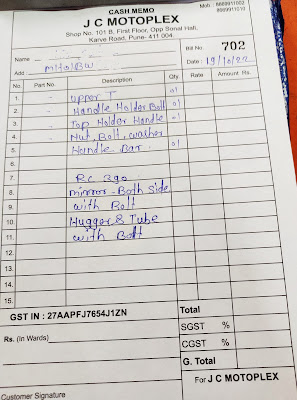 CASH MEMO
Mob : 8669911002
8669911010
J C MOTOPLEX
Shop No. 101 B, First Floor, Opp Sonal Hall,
Karve Road, Pune- 411 004.
Name
Bill No. 702
Add Date 19/10/22
No. Part No. Description Qty Rate Amount Rs.
1. upper T 01
2. Handle Holder Bolt
3. Top Holder Handle 01
4. Nut, Bolt, washer
5. Handle Bar 01
6.
7. Rc 390
8. mirror - Both Side
9. with Bolt
10. Hugger & Tube
11. with Bolt
12.
13.
14.
15.
GST IN : 27AAPFJ7654J1ZN Total
SGST %
Rs. (In Wards) CGST %
G. Total
For J C MOTOPLEX
Customer Signature